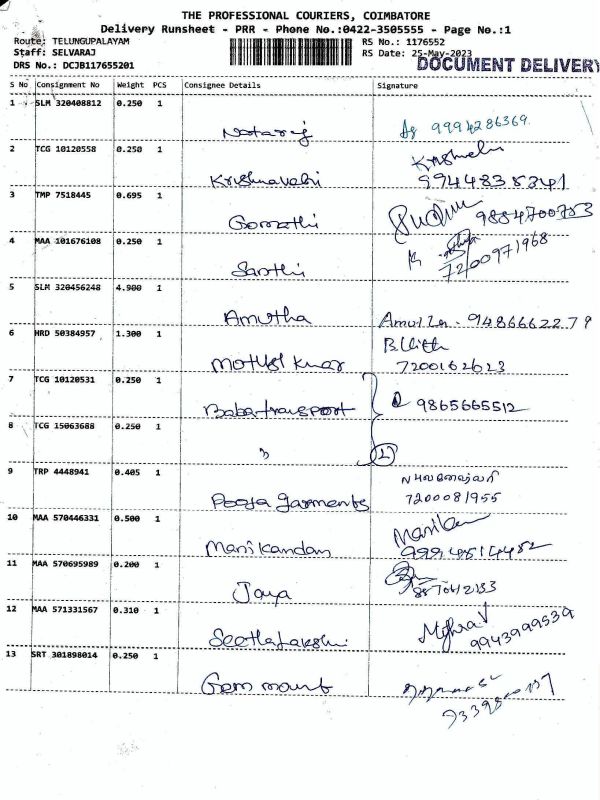 THE PROFESSIONAL COURIERS, COIMBATORE
Delivery Runsheet - PRR - Phone No.:0422-3505555 - Page No.:1
Route: TELUNGUPALAYAM RS No.: 1176552
Staff: SELVARAJ RS Date: 25-May-2023
DRS No.: DCJB117655201 DOCUMENT DELIVERY
S No Consignment No Weight PCS Consignee Details Signature
1 SLM 320408812 0.250 1
Nataraj 9994286369
2 TCG 10120558 0.250 1
Krishnaveni 9944835341
3 TMP 7518445 0.695 1
Gomathi 9884700753
4 MAA 101676108 0.250 1
Santhi 7200971968
5 SLM 320456248 4.900 1
Amutha Amutha - 9486662279
6 HRD 50384957 1.300 1
7200162623
7 TCG 10120531 0.250 1
Baba transport 9865665512
8 TCG 15063688 0.250 1
2
9 TRP 4448941 0.405 1
Pooja garments 7200081955
10 MAA 570446331 0.500 1
Manikandan
11 MAA 570695989 0.200 1
Jaya
12 MAA 571331567 0.310 1
Seethalakshmi 9943999539
13 SRT 301898014 0.250 1
Gem mount